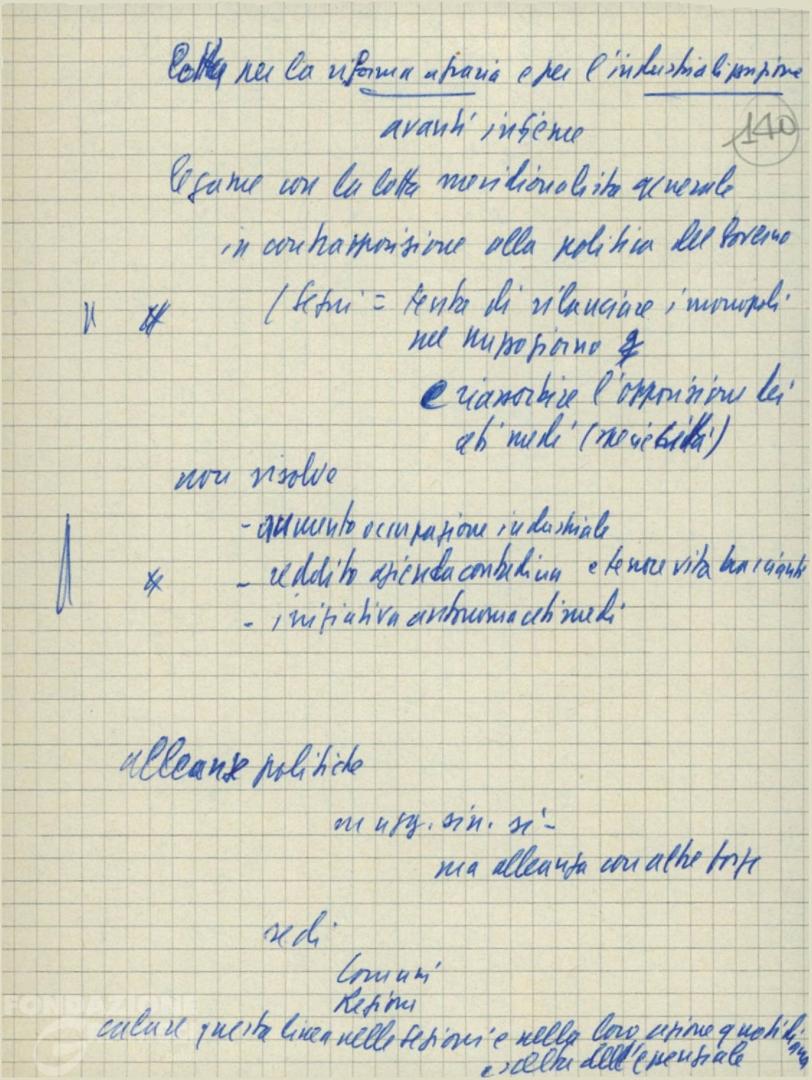 lotta per la riforma agraria e per l'industrializzazione
avanti insieme
140
legame con la lotta meridionalista generale
in contrapposizione alla politica del Governo
(Segni = tenta di rilanciare i monopoli
nel mezzogiorno
e riassorbire l'opposizione dei
ceti medi
non risolve
- aumento occupazione industriale
- reddito azienda contadina e tenore vita braccianti
- iniziativa autonoma ceti medi
alleanze politiche
magg. sin. si -
ma alleanza con altre forze
sedi
Comuni
Regioni
FONDAZIONE
calare questa linea nelle sezioni e nella loro azione quotidiana
scelta dell'essenziale